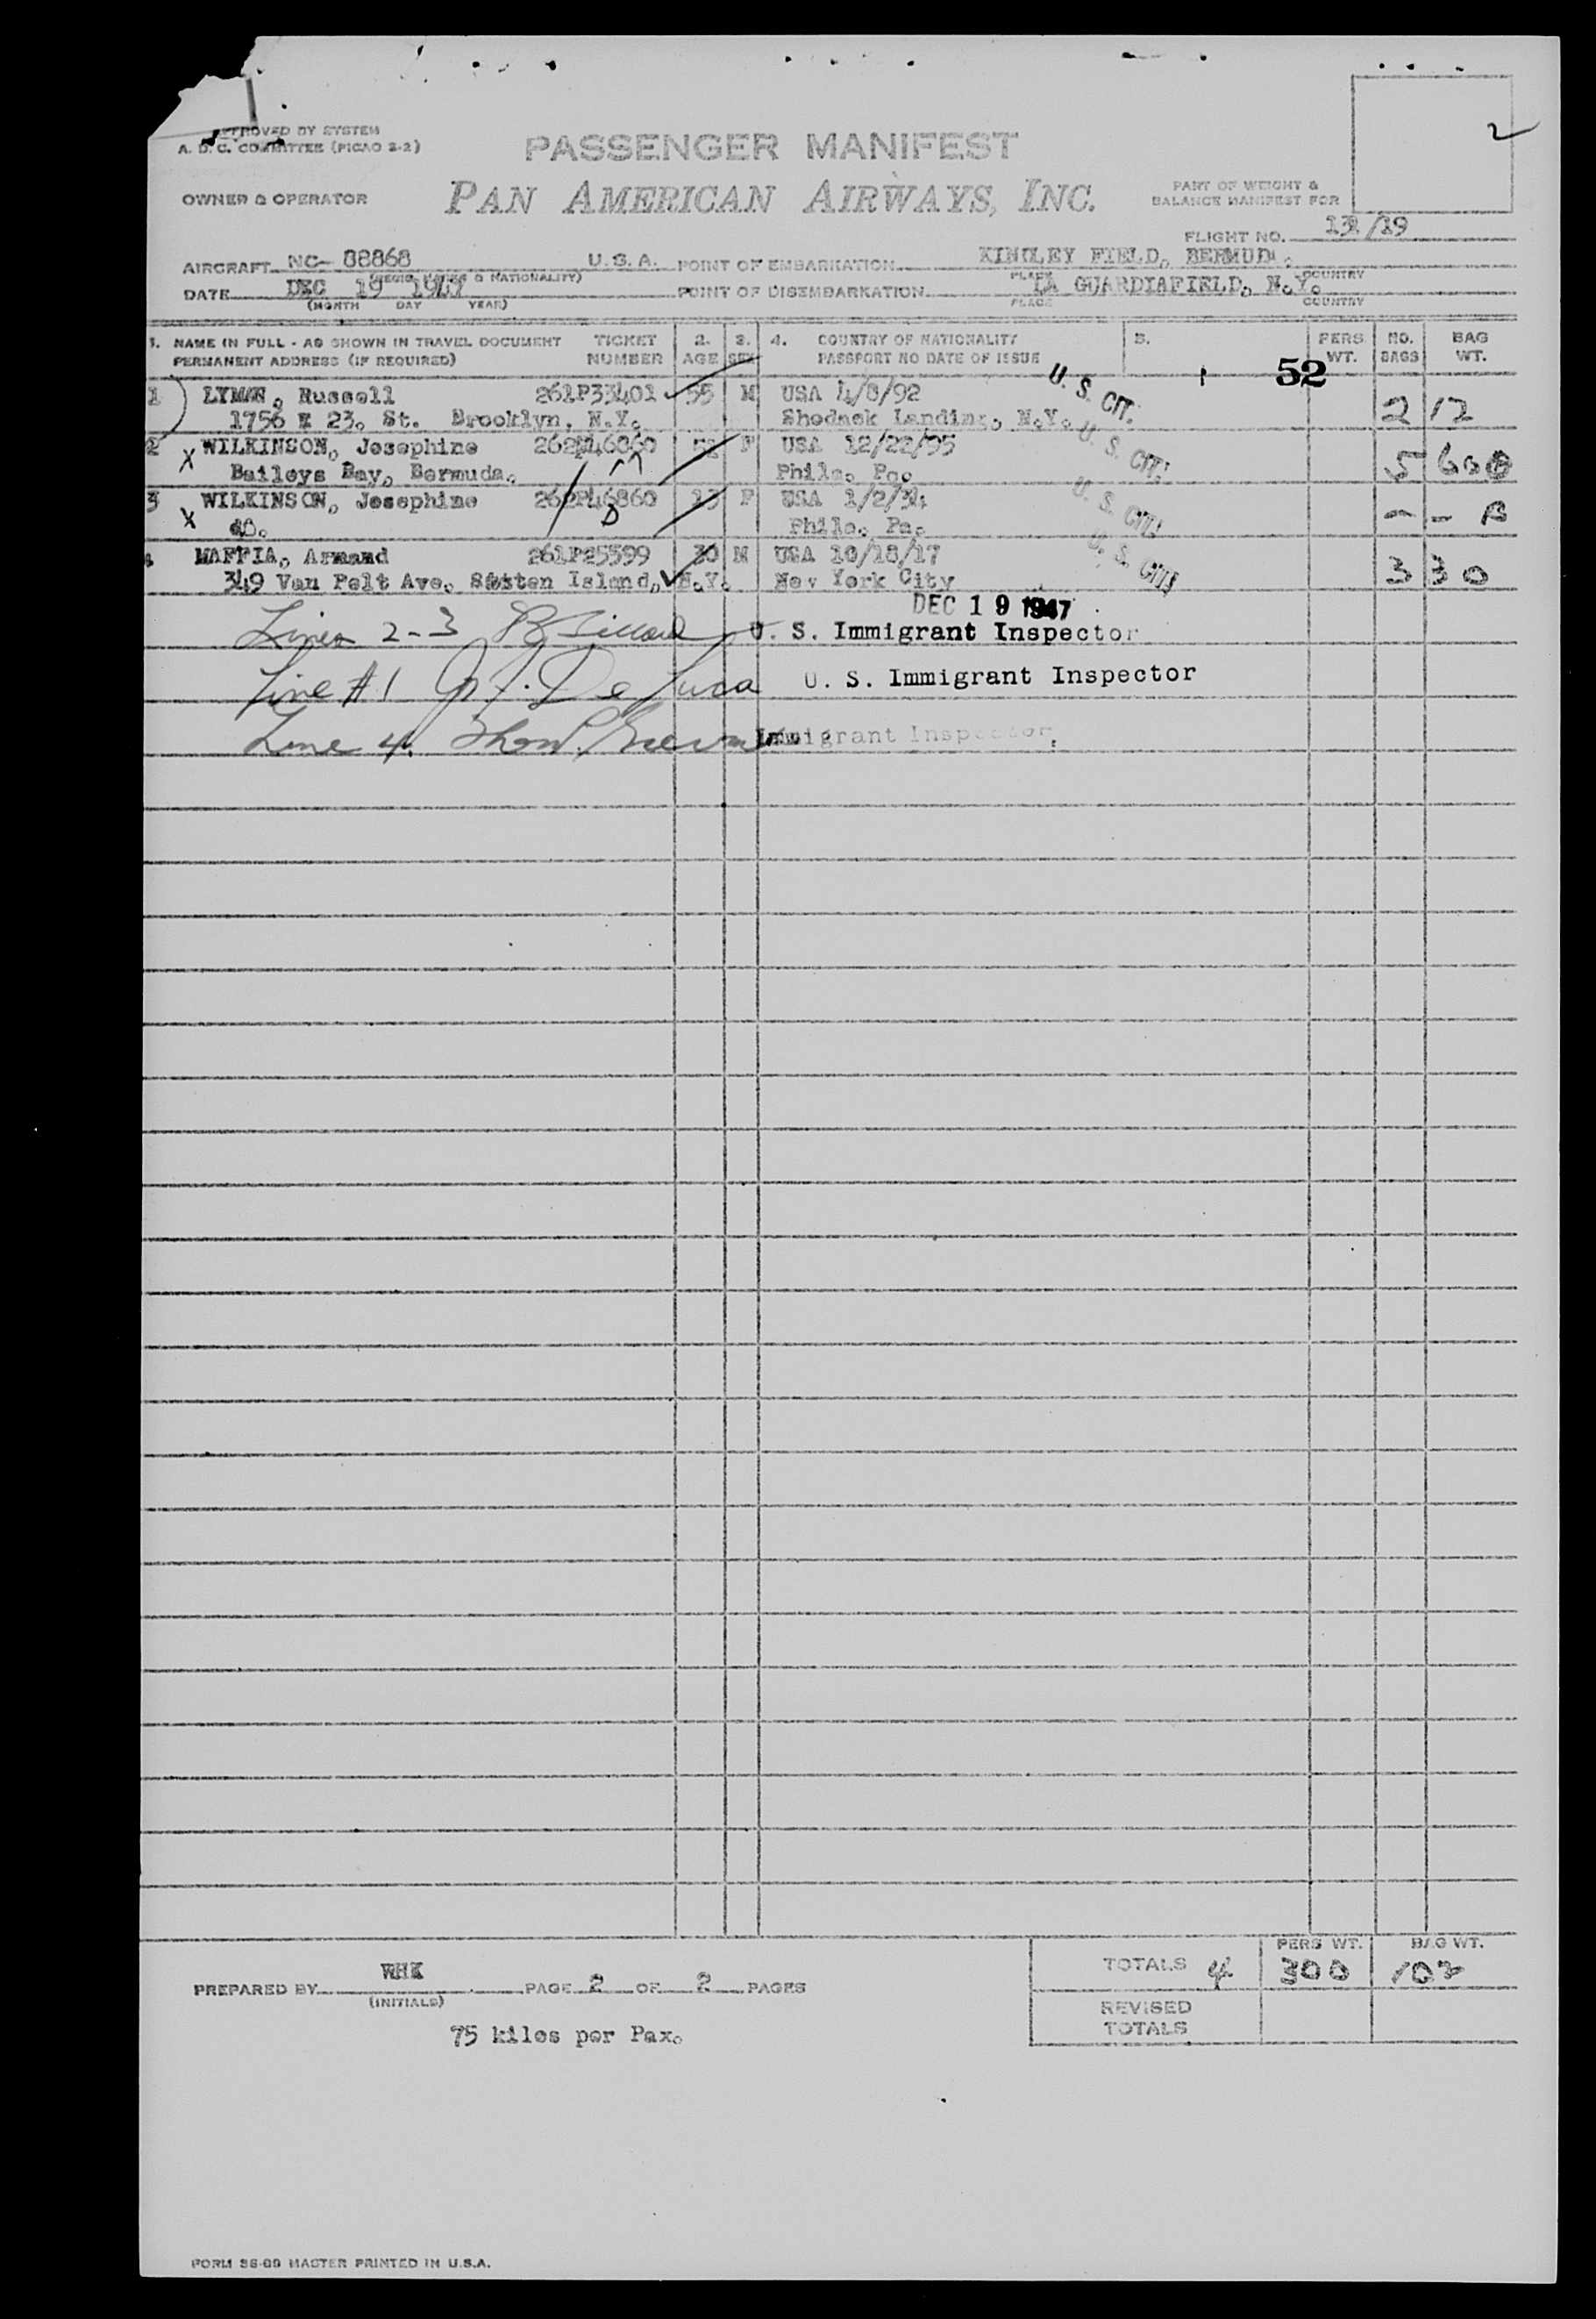 2
APPROVED BY SYSTEM
A. D. C. COMMITTEE (PICAO 2-2)
PASSENGER MANIFEST
OWNER & OPERATOR
PAN AMERICAN AIRWAYS, INC.
PART OF WEIGHT &
BALANCE MANIFEST FOR
FLIGHT NO. 131/19
AIRCRAFT NC- 88868 U.S.A. POINT OF EMBARKATION KINDLEY FIELD, BERMUDA.
& NATIONALITY) PLACE COUNTRY
DATE DEC 19 1947 POINT OF DISEMBARKATION LA GUARDIAFIELD, N.Y.
(MONTH DAY YEAR) PLACE COUNTRY
1. NAME IN FULL - AS SHOWN IN TRAVEL DOCUMENT TICKET 2. 3. 4. COUNTRY OF NATIONALITY 5. PERS NO. BAG
PERMANENT ADDRESS (IF REQUIRED) NUMBER AGE SEX PASSPORT NO DATE OF ISSUE WT. BAGS WT.
52
1 LYMAN, Russell 261P33401 55 M USA 4/8/92 U. S. CIT.
1756 E 23. St. Brooklyn, N.Y. Shodack Landing, N.Y. 2 12
2 X WILKINSON, Josephine 262P46860 F USA 12/22/95 U. S. CIT.
Baileys Bay, Bermuda. Phila. Pa. 5 60
3 WILKINSON, Josephine 262P46860 13 F USA 1/2/34 U. S. CIT.
X do. Phila. Pa. - -
4 MAFFIA, Armand 261P25599 30 M USA 10/18/17 U. S. CIT.
349 Van Pelt Ave. Staten Island, N.Y. New York City 3 30
DEC 19 1947
Lines 2-3 U. S. Immigrant Inspector
Line #1 De Luca U. S. Immigrant Inspector
Line 4. Immigrant Inspector.
TOTALS 4 PERS WT. 300 BAG WT. 102
PREPARED BY WHK PAGE 2 OF 2 PAGES
(INITIALS)
REVISED
TOTALS
75 kilos per Pax.
FORM 36-09 MASTER PRINTED IN U.S.A.